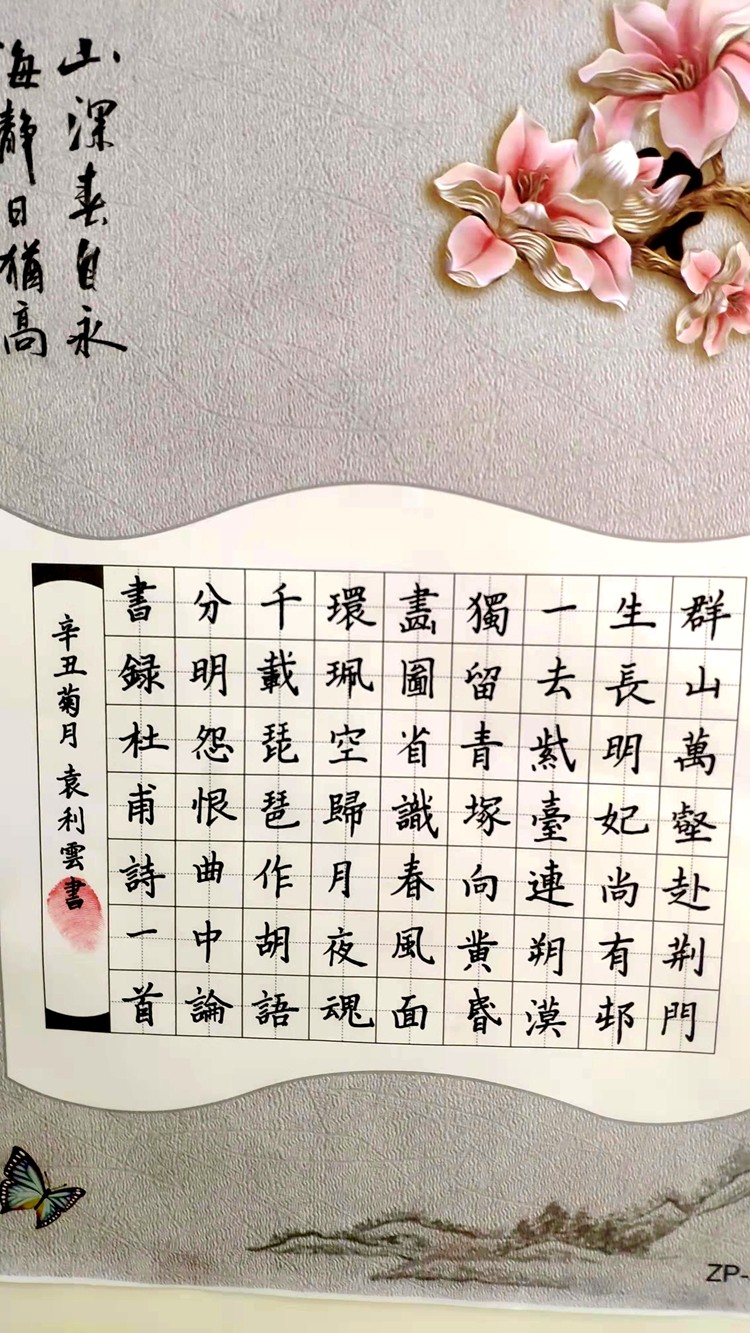 山深春自永
海静日猶高
群山萬壑赴荆門
生長明妃尚有邨
一去紫臺連朔漠
獨留青塚向黄昏
畫圖省識春風面
環珮空歸月夜魂
千載琵琶作胡語
分明怨恨曲中論
書録杜甫詩一首
辛丑菊月袁利雲書
ZP-